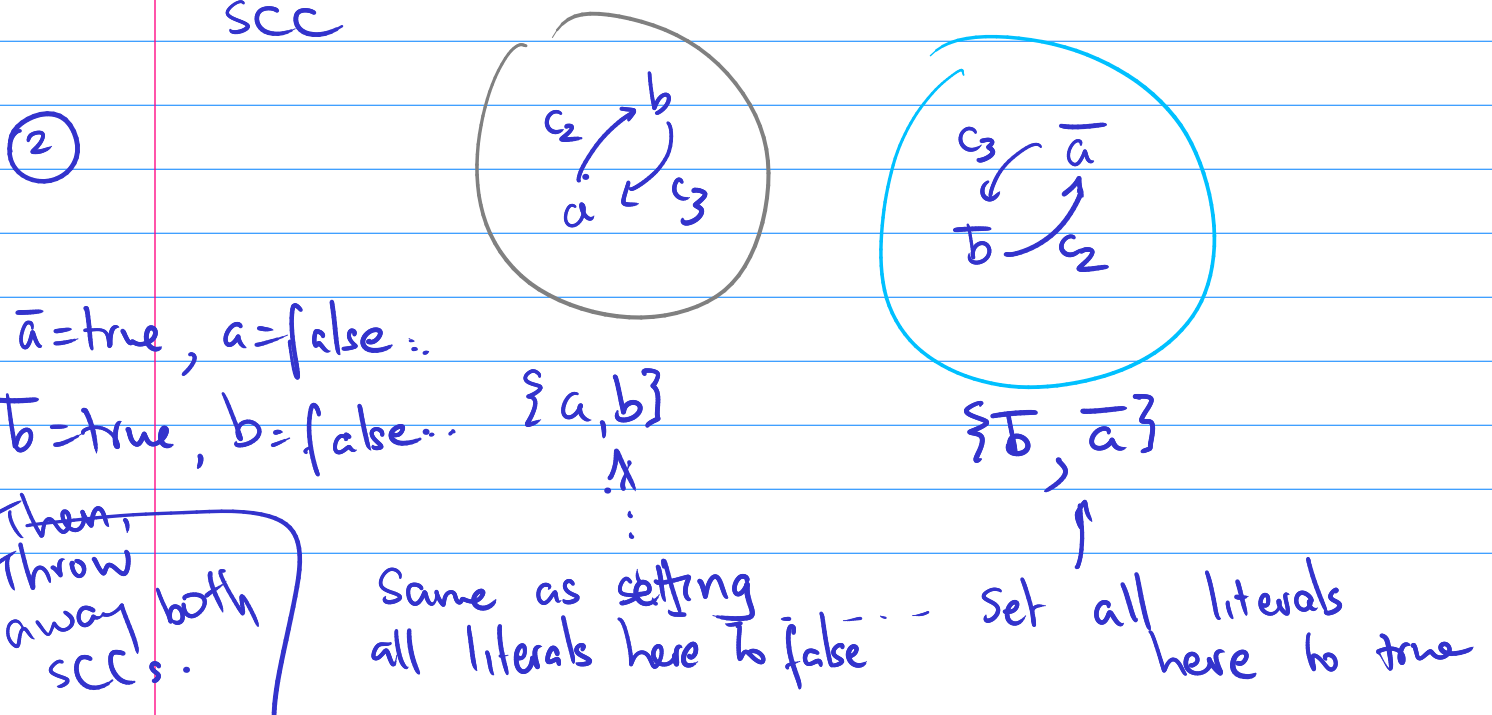 SCC
2
c₂ b
a c₃
c₃ a̅
b̅ c₂
a̅ = true, a = false..
{a, b}
b̅ = true, b = false..
{b̅, a̅}
Then,
Throw
away both
SCCs.
Same as setting
all literals here to false
Set all literals
here to true